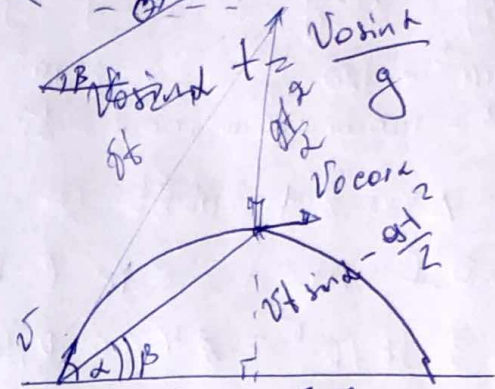 β
t = v₀sinα / g
gt
gt²/2
v₀cosα
vt sinα - gt²/2
v
α
β